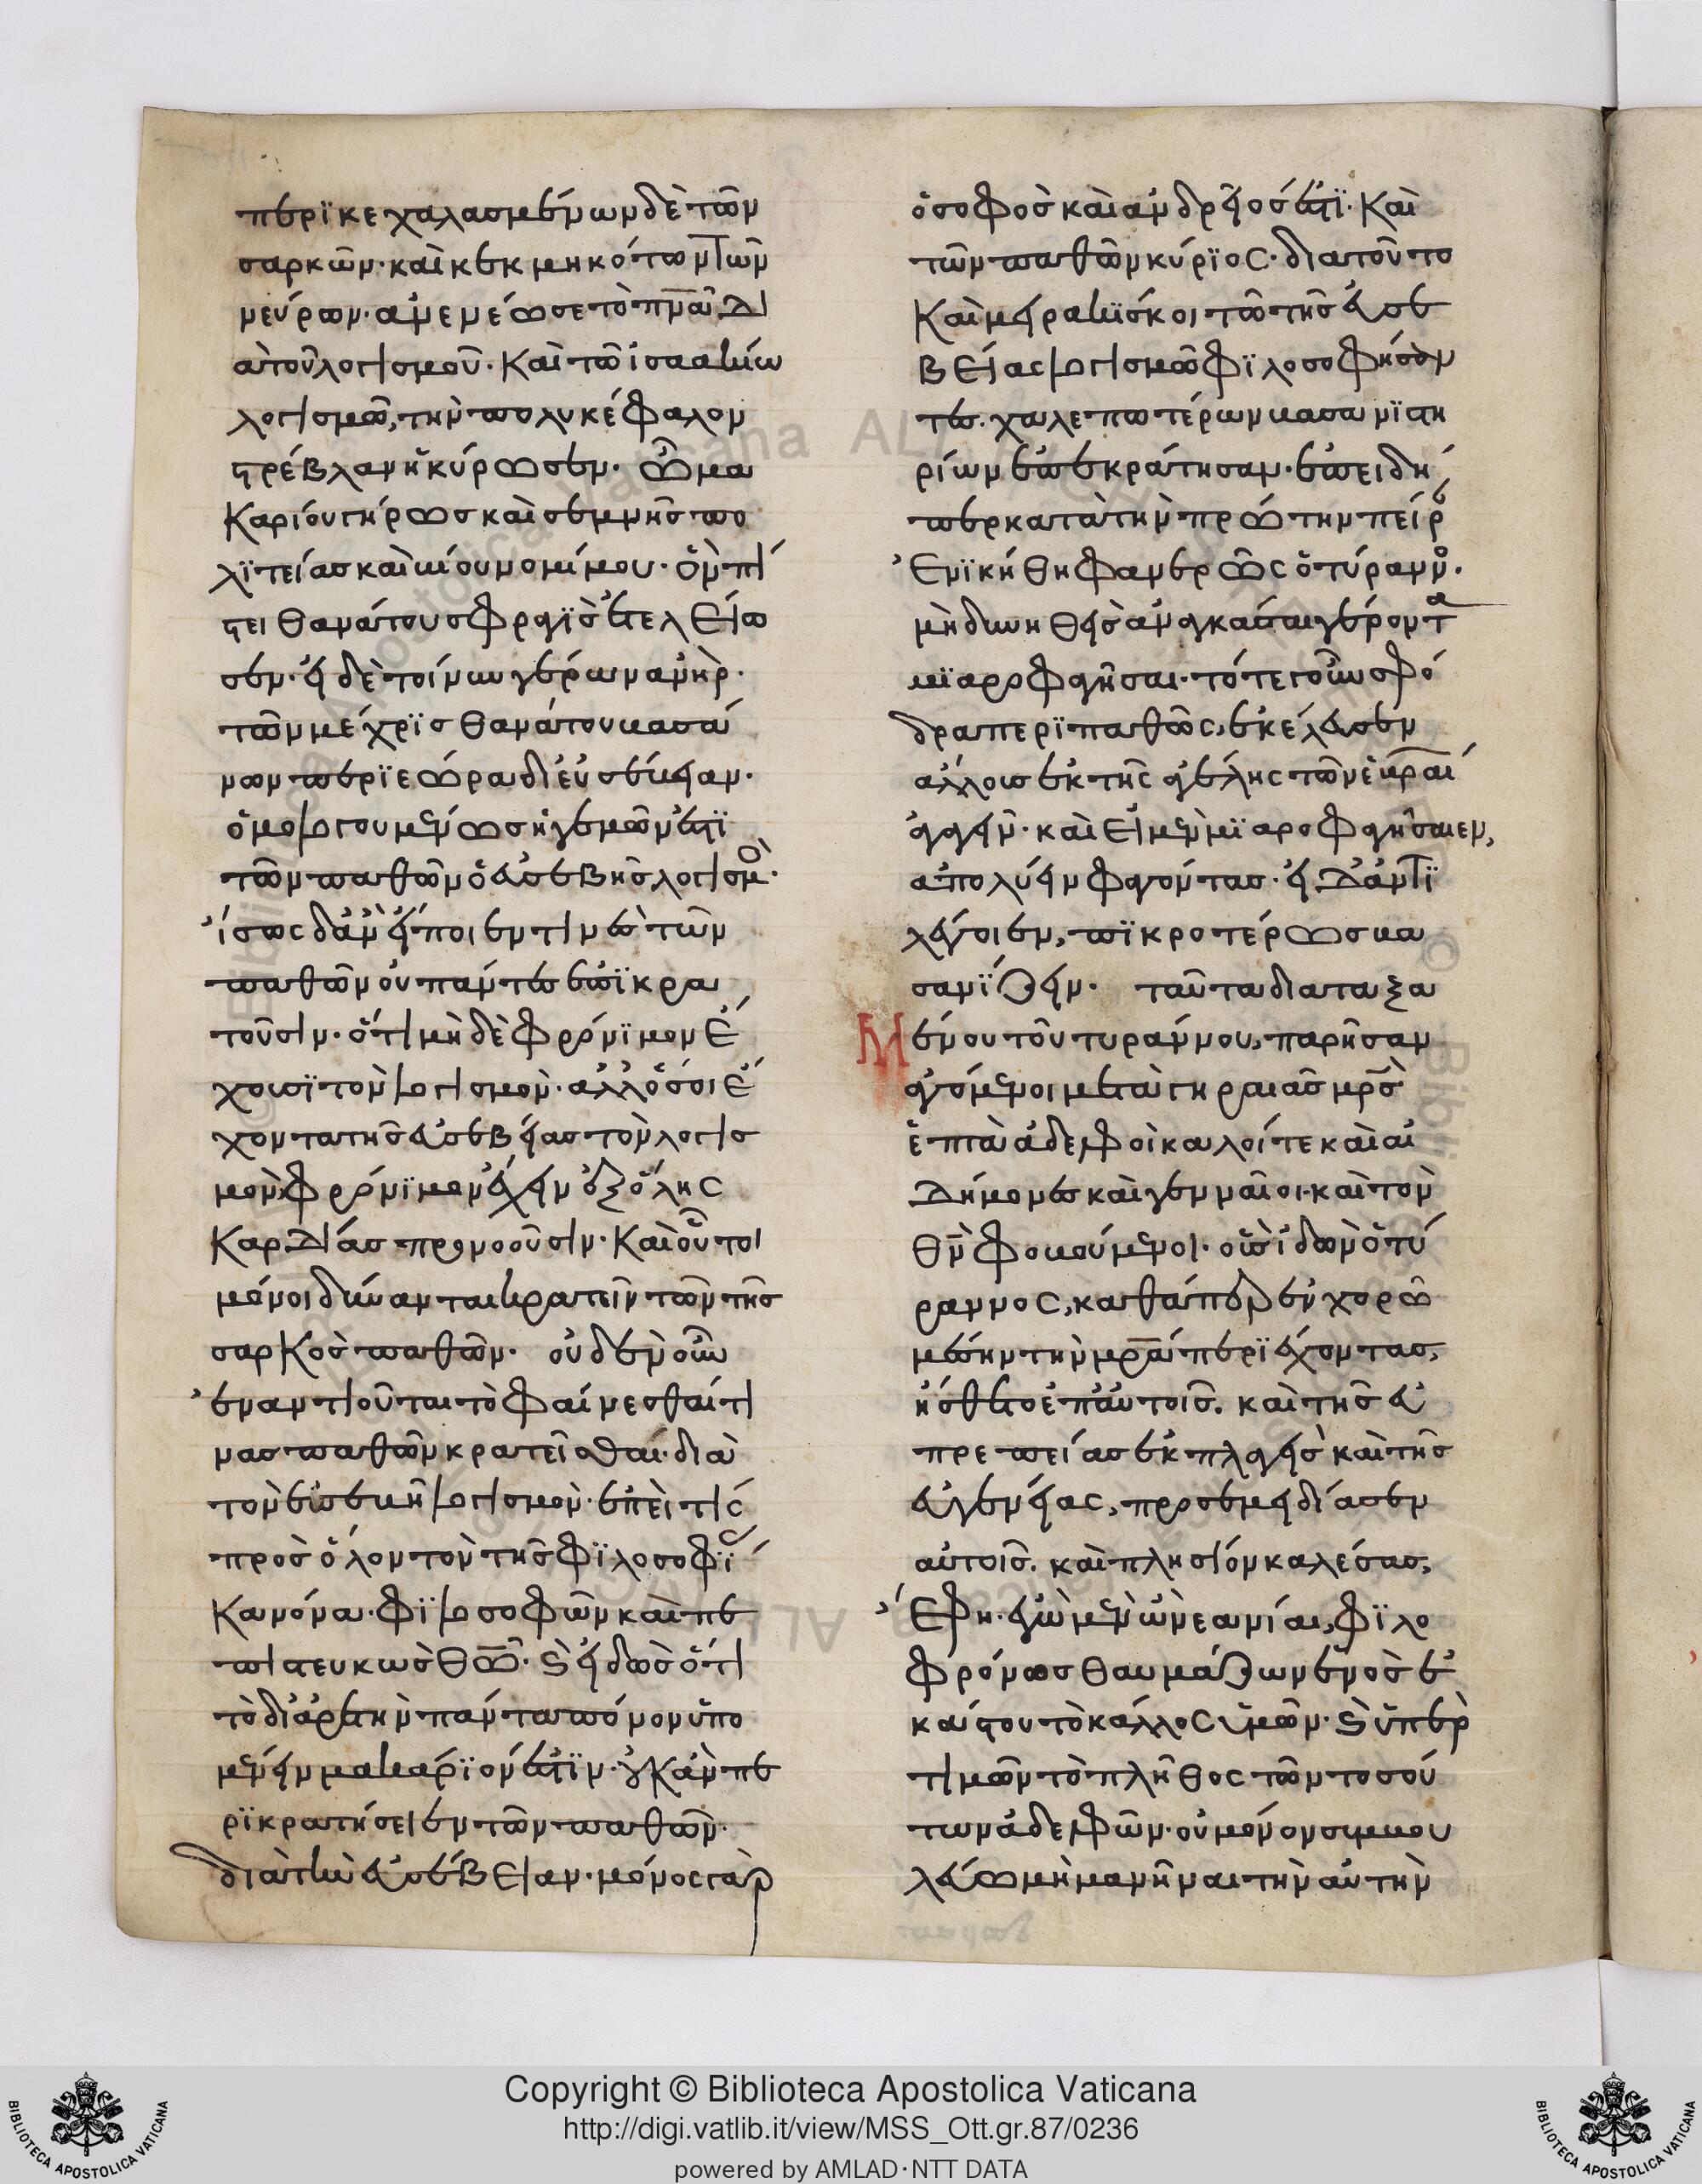 περϊκεχαλασμένων δὲ τῶν
σαρκῶν· καὶ κεκμηκότων τῶν
νεύρων· ἀνενέωσε τὸ πνα δι
ὰ τοῦ λογισμοῦ· Καὶ τῶ ἰσαακίω
λογισμῶ, τὴν πολυκέφαλον
στρέβλαν ἠκύρωσεν· ὦ μα
καρίου γήρως καὶ σεμνῆς πο
λϊτείας καὶ βίου νομίμου· ὃν πι
στει θανάτου σφραγϊς ἐτελείω
σεν· εἰ δὲ τοίνυν γέρων ἀνὴρ·
τῶν μέχρϊς θανάτου βασά
νων περϊεώρα δι' εὐσέβειαν·
ὁμολογουμένως ἡγεμών ἐστϊ
τῶν παθῶν ὁ εὐσεβὴς λογισμὸ·
ἴσως δ' ἂν εἴποιεν τινὲς τῶν
παθῶν οὐ πάντες ἐπϊκρα
τοῦσιν· ὅτι μὴ δὲ φρόνϊμον ἔ
χουσϊ τὸν λογισμὸν· ἀλλ' ὅσοι ἔ
χοντα τῆς εὐσεβείας τὸν λογισ
μὸν φρόνϊμον ἔχειν ἐξ ὅλης
Καρδίας προνοοῦσιν· Καὶ οὗτοι
μόνοι δύνανται κρατεῖν τῶν τῆς
σαρκὸς παθῶν· οὐδὲν οὖν
ἐναντιοῦται τὸ φαίνεσθαί τι
νας παθῶν κρατεῖσθαι· διὰ
τὸν ἀσθενῆ λογισμὸν· ἐπεὶ τίς
πρὸς ὅλον τὸν τῆς φϊλοσοφϊ
κανόνα· φϊλοσοφῶν καὶ πε
πιστευκὼς θῶ· καὶ εἰδὼς ὅτι
τὸ δι' ἀρετὴν πάντα πόνον ὑπο
μένειν μακάρϊόν ἐστϊν· οὐκ ἂν πε
ρϊκρατήσειεν τῶν παθῶν·
διὰ τὴν εὐσέβειαν· μόνος γὰρ
ὁ σοφὸς καὶ ἀνδρεῖος ἐστϊ· Καὶ
τῶν παθῶν κύρϊος· διὰ τοῦ το
Καὶ μειρακϊσκοι τῶ τῆς εὐσε
βείας λογισμῶ φϊλοσοφήσαν
τες· χαλεπωτέρων βασανϊστη
ρίων ἐπεκράτησαν· ἐπειδή
περ κατὰ τὴν πρώτην πείρ
ἐνϊκήθη φανερῶς ὁ τύρανν·
μὴ δυνηθεὶς ἀναγκάσαι γέροντα
μϊαροφαγῆσαι· τότε γοῦν σφό
δρα περϊπαθῶς, ἐκέλευσεν
ἄλλους ἐκ τῆς ἀγέλης τῶν ἑβραί
ἀγαγεῖν· καὶ εἰ μὲν μϊαροφαγήσαιεν,
ἀπολύειν φαγόντας· εἰ δ' ἀντϊ
λέγοιεν, πϊκροτέρως βα
σανϊζειν· ταῦτα διαταξα
Μένου τοῦ τυράννου, παρῆσαν
ἀγόμενοι μετὰ γηραιᾶς μρς
ἑπτὰ ἀδελφοὶ καλοί τε καὶ αἰ
δήμονες καὶ γενναῖοι· καὶ τὸν
θν φοβούμενοι· οὓς ἰδὼν ὁ τύ
ραννος, καθάπερ ἐν χορῶ
μέσην τὴν μρα περϊέχοντας,
ἤσθετο ἐπ' αὐτοῖς. καὶ τῆς εὐ
πρεπείας ἐκπλαγεὶς καὶ τῆς
εὐγενείας, προσεμειδίασεν
αὐτοῖς. καὶ πλησίον καλέσας,
Ἔφη· ἐγὼ μὲν ὦ νεανίαι, φϊλο
φρόνως θαυμάζων ἑνὸς ἑ
κάστου τὸ κάλλος ὑμῶν· καὶ ὑπὲρ
τιμῶν τὸ πλῆθος τῶν τοσού
των ἀδελφῶν· οὐ μόνον συμβου
λεύω μὴ μανῆναι τὴν αὐτὴν
Copyright © Biblioteca Apostolica Vaticana
http://digi.vatlib.it/view/MSS_Ott.gr.87/0236
powered by AMLAD·NTT DATA
BIBLIOTECA APOSTOLICA VATICANA
BIBLIOTECA APOSTOLICA VATICANA